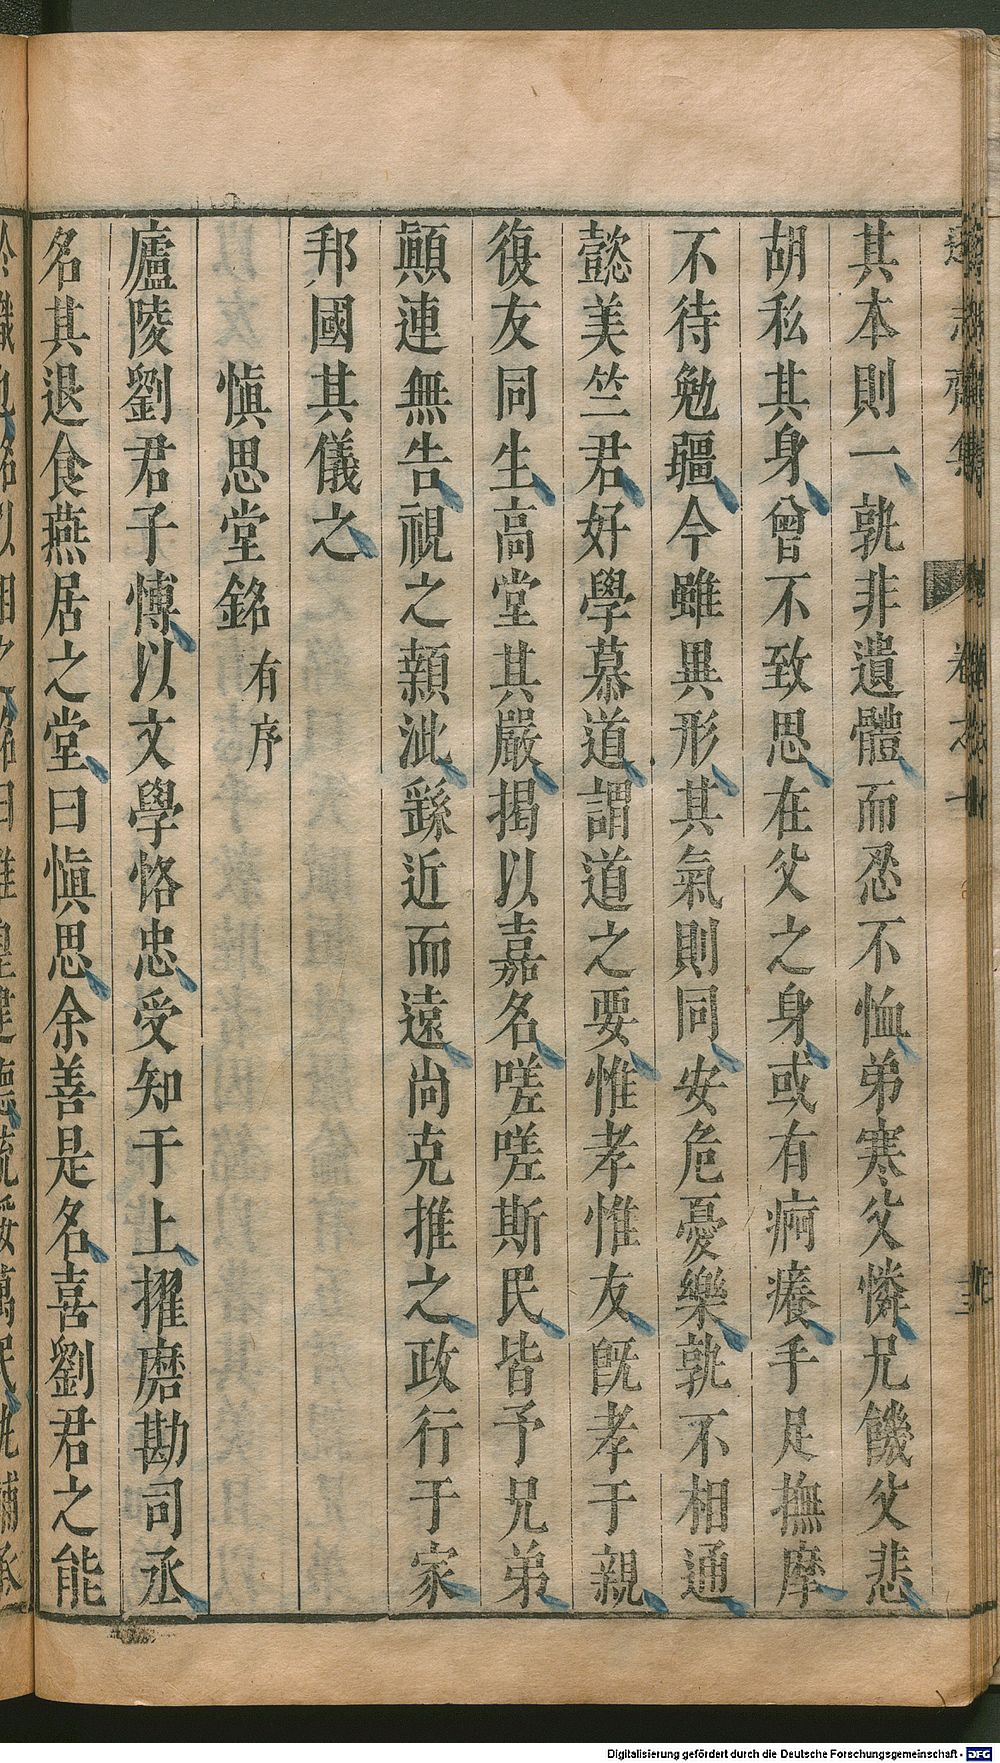 其本則一孰非遺體而忍不恤弟寒父憐兄饑父悲
胡私其身曾不致思在父之身或有痾癢手足撫摩
不待勉彊今雖異形其氣則同安危憂樂孰不相通
懿美竺君好學慕道謂道之要惟孝惟友旣孝于親
復友同生高堂其嚴揭以嘉名嗟嗟斯民皆予兄弟
顚連無告視之顙泚繇近而遠尚克推之政行于家
邦國其儀之
愼思堂銘 有序
廬陵劉君子博以文學恪忠受知于上擢磨勘司丞
名其退食燕居之堂曰愼思余善是名喜劉君之能
卷之一
Digitalisierung gefördert durch die Deutsche Forschungsgemeinschaft - DFG